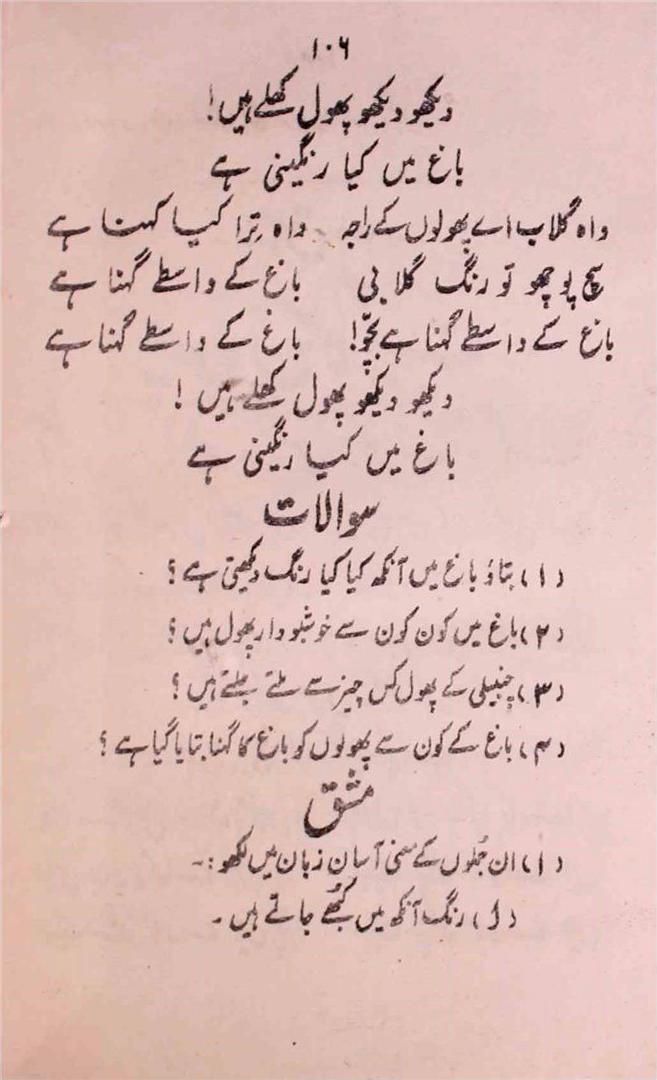 ۱۰۶
دیکھو دیکھو پھول کھلے ہیں!
باغ میں کیا رنگینی ہے
واہ گلاب اے پھولوں کے راجہ واہ تِرا کیا کہنا ہے
سچ پوچھو تو رنگ گلابی باغ کے واسطے گہنا ہے
باغ کے واسطے گہنا ہے بچّو! باغ کے واسطے گہنا ہے
دیکھو دیکھو پھول کھلے ہیں !
باغ میں کیا رنگینی ہے
سوالات
(۱) بتاؤ باغ میں آنکھ کیا کیا رنگ دیکھتی ہے ؟
(۲) باغ میں کون کون سے خوشبودار پھول ہیں ؟
(۳) چنبیلی کے پھول کس چیز سے ملتے جلتے ہیں ؟
(۴) باغ کے کون سے پھولوں کو باغ کا گہنا بتایا گیا ہے ؟
مشق
(۱) ان جُملوں کے معنی آسان زبان میں لکھو :۔
(۱) رنگ آنکھ میں کُھبے جاتے ہیں ۔